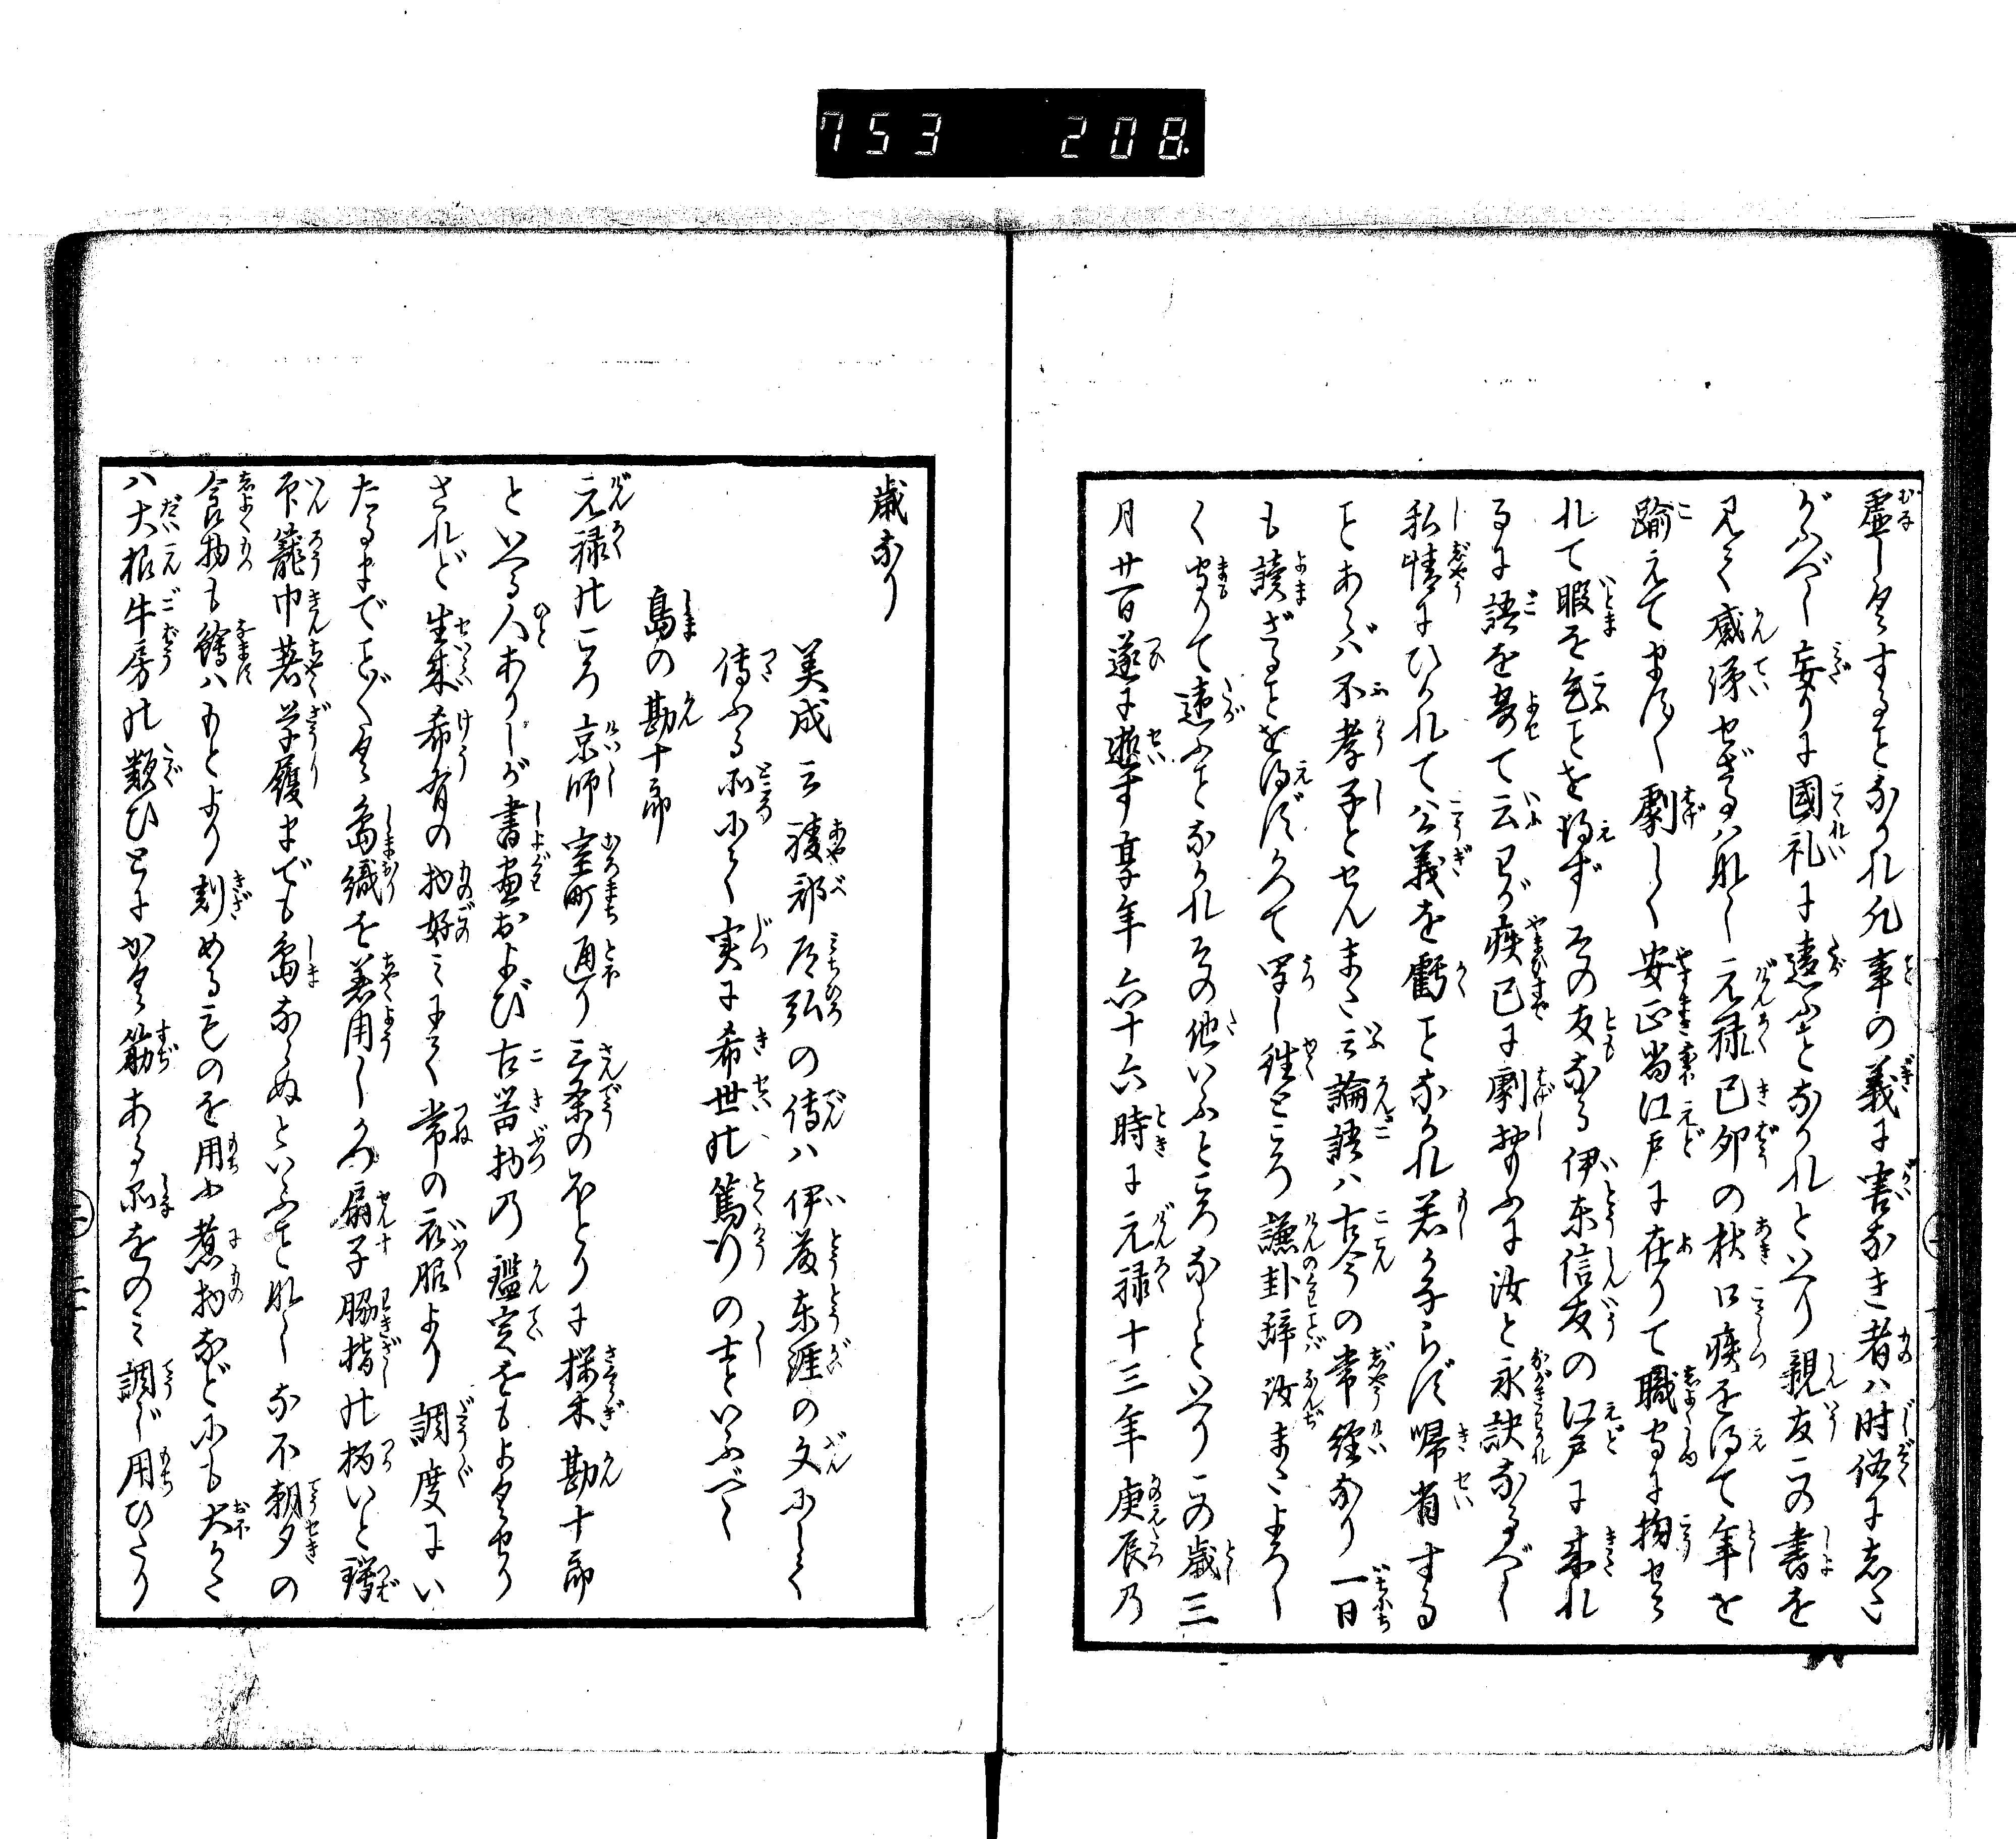 753 208
虚しくすることなかれ凡事の義に害なき者ハ時俗にした
がふべし妄りに國礼に違ふことなかれといへり親友この書を
見て感涕せざるハなし元禄己卯の秋口疾を得て年を
踰えてます〳〵劇しく安正尚江戸に在りて職守に拘せら
れて暇を乞ことを得ずその友なる伊東信友の江戸に来れ
るに語を寄て云わが疾已に劇おもふに汝と永訣なるべし
私情にひかれて公義を虧ことなかれ若かならず帰省する
ことあらバ不孝子とせんまた云論語ハ古今の常経なり一日
も讀ざることを得ずかつて
謙卦辞汝またよろし
く守りて違ふことなかれその他いふところなしといへりこの歳三
月廿一日遂に逝す享年六十六時に元禄十三年庚辰乃
歳なり
美成云綾部道弘の傳ハ伊藤東涯の文にして
傳ふる所にて実に希世の篤行の士といふべし
島の勘十郎
元禄のころ京師室町通り三条のほとりに椹木勘十郎
といへる人ありしが書画および古器物乃鑑定をもよくせり
されど生来希有の物好ミにて常の衣服より調度にい
たるまでこと〴〵く島織を着用しかつ扇子脇指の柄いと鐔
印籠巾着草履までも島ならぬといふことなしなほ朝夕の
食物も鱠ハもとより刻めるものを用ゐ煮物などにも大かた
ハ大根牛房の類ひことにかく筋ある品をのミ調じ用ひたり